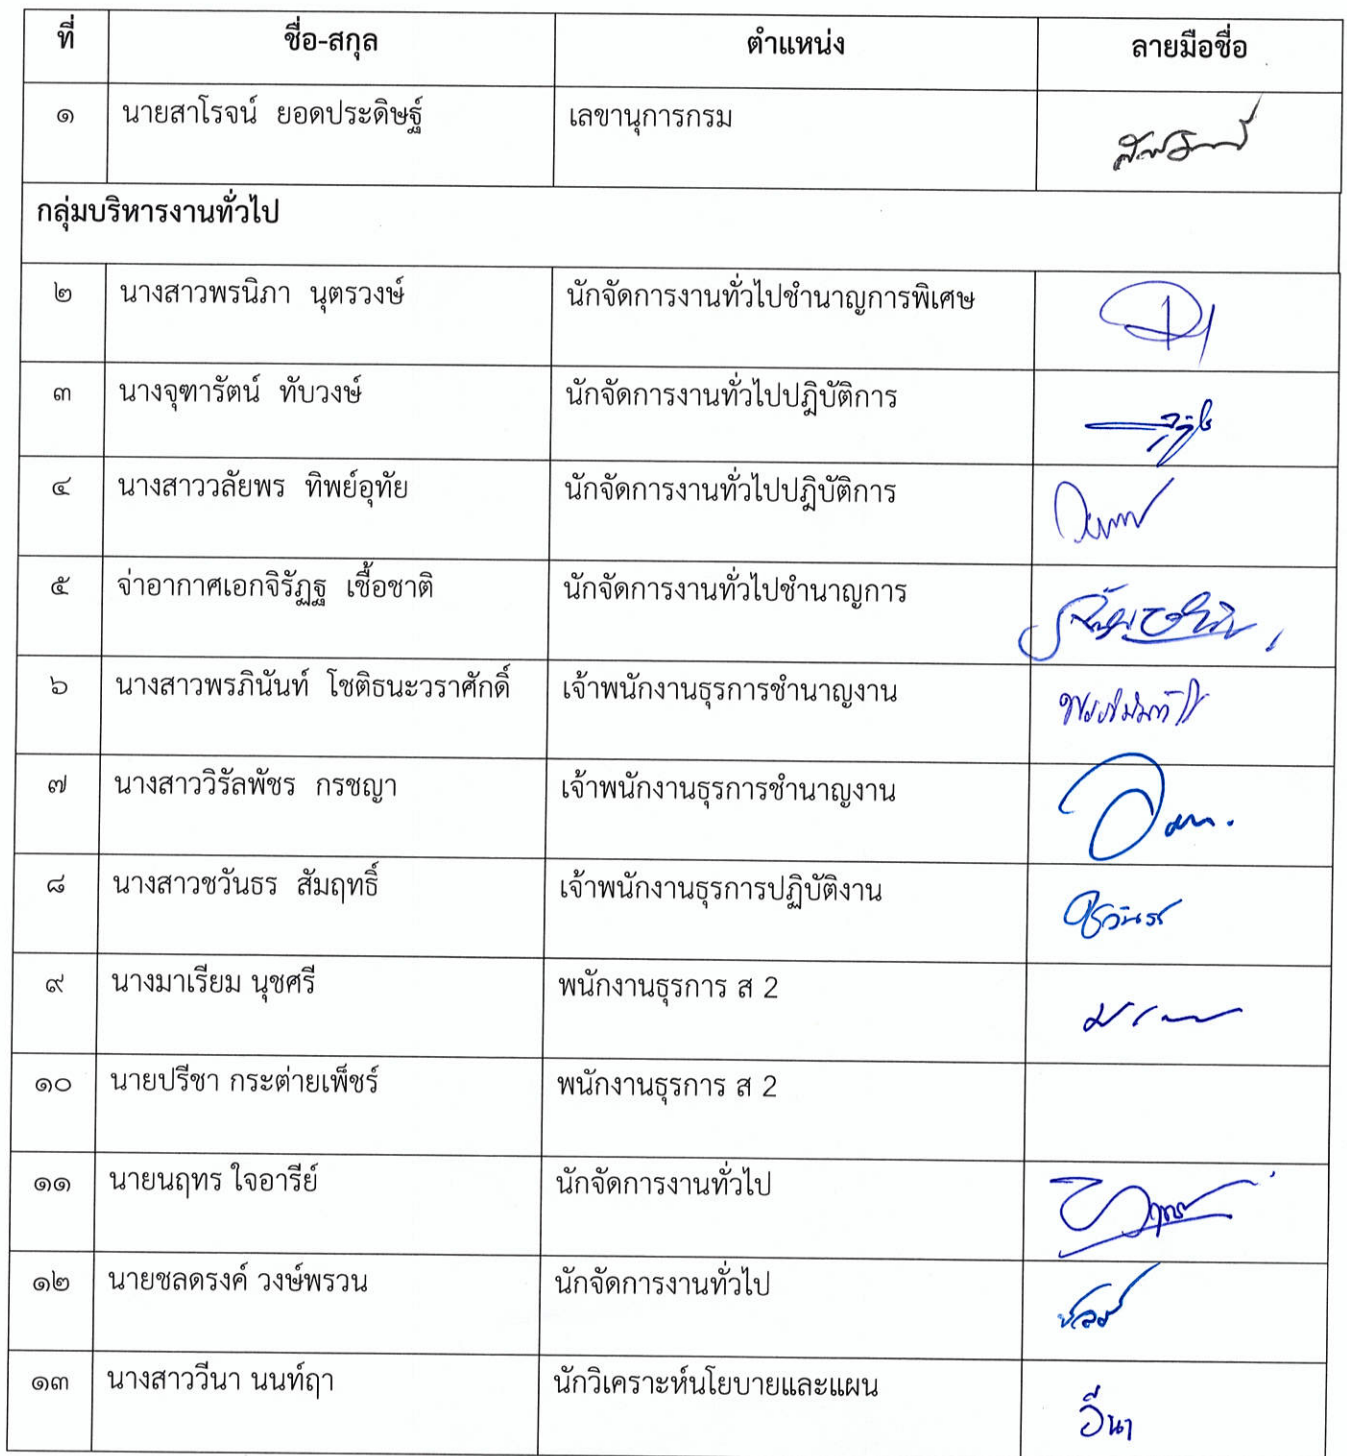 ที่ ชื่อ-สกุล ตำแหน่ง ลายมือชื่อ
๑ นายสาโรจน์ ยอดประดิษฐ์ เลขานุการกรม
กลุ่มบริหารงานทั่วไป
๒ นางสาวพรนิภา นุตรวงษ์ นักจัดการงานทั่วไปชำนาญการพิเศษ
๓ นางจุฑารัตน์ ทับวงษ์ นักจัดการงานทั่วไปปฎิบัติการ
๔ นางสาววลัยพร ทิพย์อุทัย นักจัดการงานทั่วไปปฎิบัติการ
๕ จ่าอากาศเอกจิรัฏฐ เชื้อชาติ นักจัดการงานทั่วไปชำนาญการ
๖ นางสาวพรภินันท์ โชติธนะวราศักดิ์ เจ้าพนักงานธุรการชำนาญงาน
๗ นางสาววิรัลพัชร กรชญา เจ้าพนักงานธุรการชำนาญงาน
๘ นางสาวชวันธร สัมฤทธิ์ เจ้าพนักงานธุรการปฏิบัติงาน ชวันธร
๙ นางมาเรียม นุชศรี พนักงานธุรการ ส 2
๑๐ นายปรีชา กระต่ายเพ็ชร์ พนักงานธุรการ ส 2
๑๑ นายนฤทร ใจอารีย์ นักจัดการงานทั่วไป
๑๒ นายชลดรงค์ วงษ์พรวน นักจัดการงานทั่วไป
๑๓ นางสาววีนา นนท์ฤา นักวิเคราะห์นโยบายและแผน วีนา